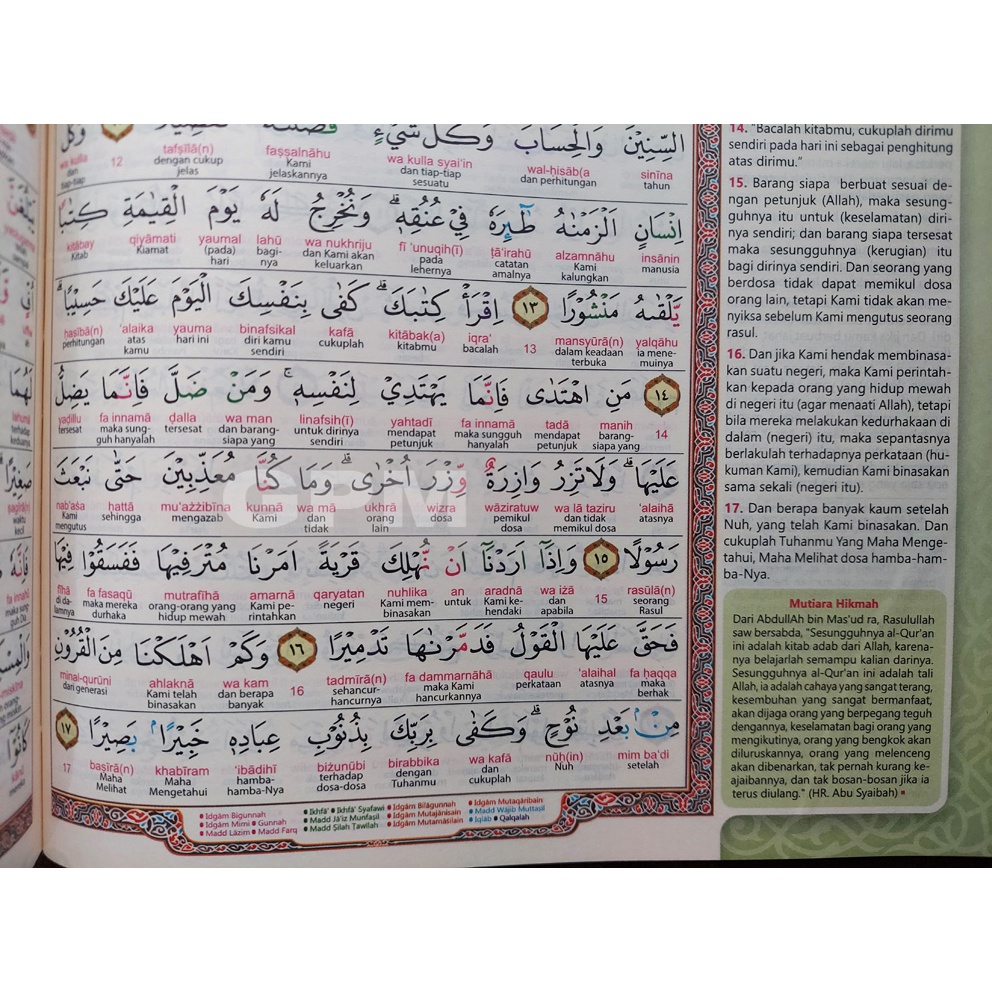 السِّنِيْنَ وَالْحِسَابَ وَكُلَّ شَيْءٍ
sinīna wal-ḥisāb(a wa kulla syai'in faṣṣalnāhu tafṣīlā(n) 12 wa kulla
tahun dan perhitungan dan tiap-tiap sesuatu Kami jelaskannya dengan cukup jelas tiap-tiap
اِنْسَانٍ اَلْزَمْنٰهُ طٰۤىِٕرَهٗ فِيْ عُنُقِهٖۗ وَنُخْرِجُ لَهٗ يَوْمَ الْقِيٰمَةِ كِتٰبًا
insānin alzamnāhu ṭā'irahū fī 'unuqih(ī) wa nukhriju lahū yaumal qiyāmati kitābay
manusia Kami kalungkan catatan amalnya pada lehernya dan Kami akan keluarkan bagi-nya (pada) hari Kiamat Kitab
يَّلْقٰىهُ مَنْشُوْرًا ١٣ اِقْرَأْ كِتٰبَكَۗ كَفٰى بِنَفْسِكَ الْيَوْمَ عَلَيْكَ حَسِيْبًاۗ
yalqāhu mansyūrā(n) 13 iqra' kitābak(a) kafā binafsikal yauma 'alaika ḥasībā(n)
ia mene-muinya dalam keadaan terbuka bacalah kitabmu cukuplah diri kamu sendiri hari ini atas kamu perhitungan
١٤ مَنِ اهْتَدٰى فَاِنَّمَا يَهْتَدِيْ لِنَفْسِهٖۚ وَمَنْ ضَلَّ فَاِنَّمَا يَضِلُّ
14 manih tadā fa innamā yahtadī linafsih(ī) wa man ḍalla fa innamā yaḍillu
barang-siapa yang mendapat petunjuk maka sungguh hanyalah mendapat petunjuk untuk dirinya sendiri dan barang-siapa yang tersesat maka sung-guh hanyalah tersesat
عَلَيْهَاۗ وَلَا تَزِرُ وَازِرَةٌ وِّزْرَ اُخْرٰىۗ وَمَا كُنَّا مُعَذِّبِيْنَ حَتّٰى نَبْعَثَ
'alaihā wa lā taziru wāziratuw wizra ukhrā wa mā kunnā mu'ażżibīna ḥattā nab'aṡa
atasnya dan tidak memikul dosa pemikul dosa dosa orang lain dan tidak Kami mengazab sehingga Kami mengutus
رَسُوْلًا ١٥ وَاِذَآ اَرَدْنَآ اَنْ نُّهْلِكَ قَرْيَةً اَمَرْنَا مُتْرَفِيْهَا فَفَسَقُوْا فِيْهَا
rasūlā(n) 15 wa iżā aradnā an nuhlika qaryatan amarnā mutrafīhā fa fasaqū fīhā
seorang Rasul dan apabila Kami ke-hendaki untuk Kami mem-binasakan negeri Kami pe-rintahkan orang-orang yang hidup mewah maka mereka durhaka di da-lamnya
فَحَقَّ عَلَيْهَا الْقَوْلُ فَدَمَّرْنٰهَا تَدْمِيْرًا ١٦ وَكَمْ اَهْلَكْنَا مِنَ الْقُرُوْنِ
fa ḥaqqa 'alaihal qaulu fa dammarnāhā tadmīrā(n) 16 wa kam ahlaknā minal-qurūni
maka berhak atasnya perkataan maka Kami hancurkannya sehancur-hancurnya dan berapa banyak Kami telah binasakan dari generasi
مِنْۢ بَعْدِ نُوْحٍۗ وَكَفٰى بِرَبِّكَ بِذُنُوْبِ عِبَادِهٖ خَبِيْرًاۢ بَصِيْرًا ١٧
mim ba'di nūḥ(in) wa kafā birabbika biżunūbi 'ibādihī khabīram baṣīrā(n) 17
setelah Nuh dan cukuplah dengan Tuhanmu terhadap dosa-dosa hamba-hamba-Nya Maha Mengetahui Maha Melihat
Idgām Bigunnah Ikhfā' Ikhfā' Syafawi Idgām Bilāgunnah Idgām Mutaqāribain
Idgām Mimi Gunnah Madd Jā'iz Munfaṣil Idgām Mutajānisain Madd Wājib Muttaṣil
Madd Lāzim Madd Farq Madd Ṣilah Ṭawīlah Idgām Mutamāṡilain Iqlāb Qalqalah
14. "Bacalah kitabmu, cukuplah dirimu
sendiri pada hari ini sebagai penghitung
atas dirimu."
15. Barang siapa berbuat sesuai de-
ngan petunjuk (Allah), maka sesung-
guhnya itu untuk (keselamatan) diri-
nya sendiri; dan barang siapa tersesat
maka sesungguhnya (kerugian) itu
bagi dirinya sendiri. Dan seorang yang
berdosa tidak dapat memikul dosa
orang lain, tetapi Kami tidak akan me-
nyiksa sebelum Kami mengutus seorang
rasul.
16. Dan jika Kami hendak membinasa-
kan suatu negeri, maka Kami perintah-
kan kepada orang yang hidup mewah
di negeri itu (agar menaati Allah), tetapi
bila mereka melakukan kedurhakaan di
dalam (negeri) itu, maka sepantasnya
berlakulah terhadapnya perkataan (hu-
kuman Kami), kemudian Kami binasakan
sama sekali (negeri itu).
17. Dan berapa banyak kaum setelah
Nuh, yang telah Kami binasakan. Dan
cukuplah Tuhanmu Yang Maha Menge-
tahui, Maha Melihat dosa hamba-ham-
ba-Nya.
Mutiara Hikmah
Dari AbdullAh bin Mas'ud ra, Rasulullah
saw bersabda, "Sesungguhnya al-Qur'an
ini adalah kitab adab dari Allah, karena-
nya belajarlah semampu kalian darinya.
Sesungguhnya al-Qur'an ini adalah tali
Allah, ia adalah cahaya yang sangat terang,
kesembuhan yang sangat bermanfaat,
akan dijaga orang yang berpegang teguh
dengannya, keselamatan bagi orang yang
mengikutinya, orang yang bengkok akan
diluruskannya, orang yang melenceng
akan dibenarkan, tak pernah kurang ke-
ajaibannya, dan tak bosan-bosan jika ia
terus diulang." (HR. Abu Syaibah)
GPM